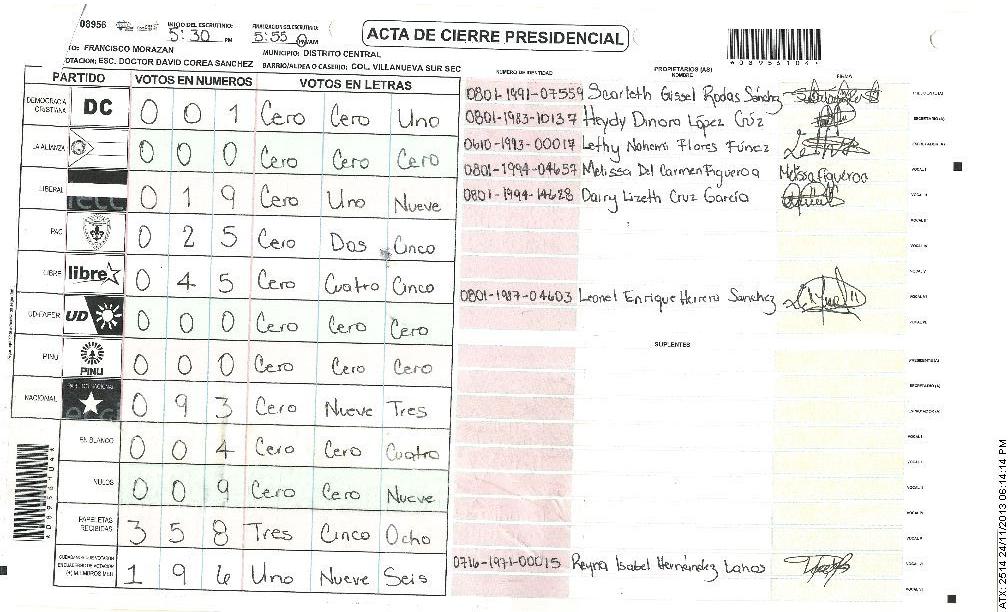 08956
INICIO DEL ESCRUTINIO: 5:30 PM
FINALIZACION DEL ESCRUTINIO: 5:55 PM/AM
ACTA DE CIERRE PRESIDENCIAL
TO: FRANCISCO MORAZAN
MUNICIPIO: DISTRITO CENTRAL
OTACION: ESC. DOCTOR DAVID COREA SANCHEZ
BARRIO/ALDEA O CASERIO: COL. VILLANUEVA SUR SEC
PARTIDO VOTOS EN NUMEROS VOTOS EN LETRAS
NUMERO DE IDENTIDAD PROPIETARIOS (AS) NOMBRE FIRMA
DEMOCRACIA CRISTIANA DC 0 0 1 Cero Cero Uno
LA ALIANZA 0 0 0 Cero Cero Cero
LIBERAL 0 1 9 Cero Uno Nueve
PAC 0 2 5 Cero Dos Cinco
LIBRE libre 0 4 5 Cero Cuatro Cinco
UD-FAPER UD 0 0 0 Cero Cero Cero
PINU PINU 0 0 0 Cero Cero Cero
NACIONAL 0 9 3 Cero Nueve Tres
EN BLANCO 0 0 4 Cero Cero Cuatro
NULOS 0 0 9 Cero Cero Nueve
PAPELETAS RECIBIDAS 3 5 8 Tres Cinco Ocho
1 9 6 Uno Nueve Seis
0801-1991-07559 Scarleth Gissel Rodas Sánchez
0801-1983-10137 Heydy Dinora López Cruz
0610-1993-00017 Lethy Nohemi Flores Fúnez
0801-1994-04657 Melissa Del Carmen Figueroa Melissa Figueroa
0801-1994-14628 Dairy Lizeth Cruz García
0801-1987-04603 Leonel Enrique Herrera Sanchez
SUPLENTES
0716-1971-00015 Reyna Isabel Hernández Lanas
ATX: 2514 24/11/2013 06:14:14 PM